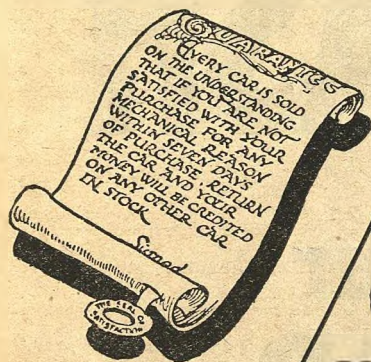 GUARANTEE
EVERY CAR IS SOLD
ON THE UNDERSTANDING
THAT IF YOU ARE NOT
SATISFIED WITH YOUR
PURCHASE FOR ANY
MECHANICAL REASON
WITHIN SEVEN DAYS
OF PURCHASE - RETURN
THE CAR AND YOUR
MONEY WILL BE CREDITED
ON ANY OTHER CAR
IN STOCK
Signed
THE SEAL OF
SATISFACTION